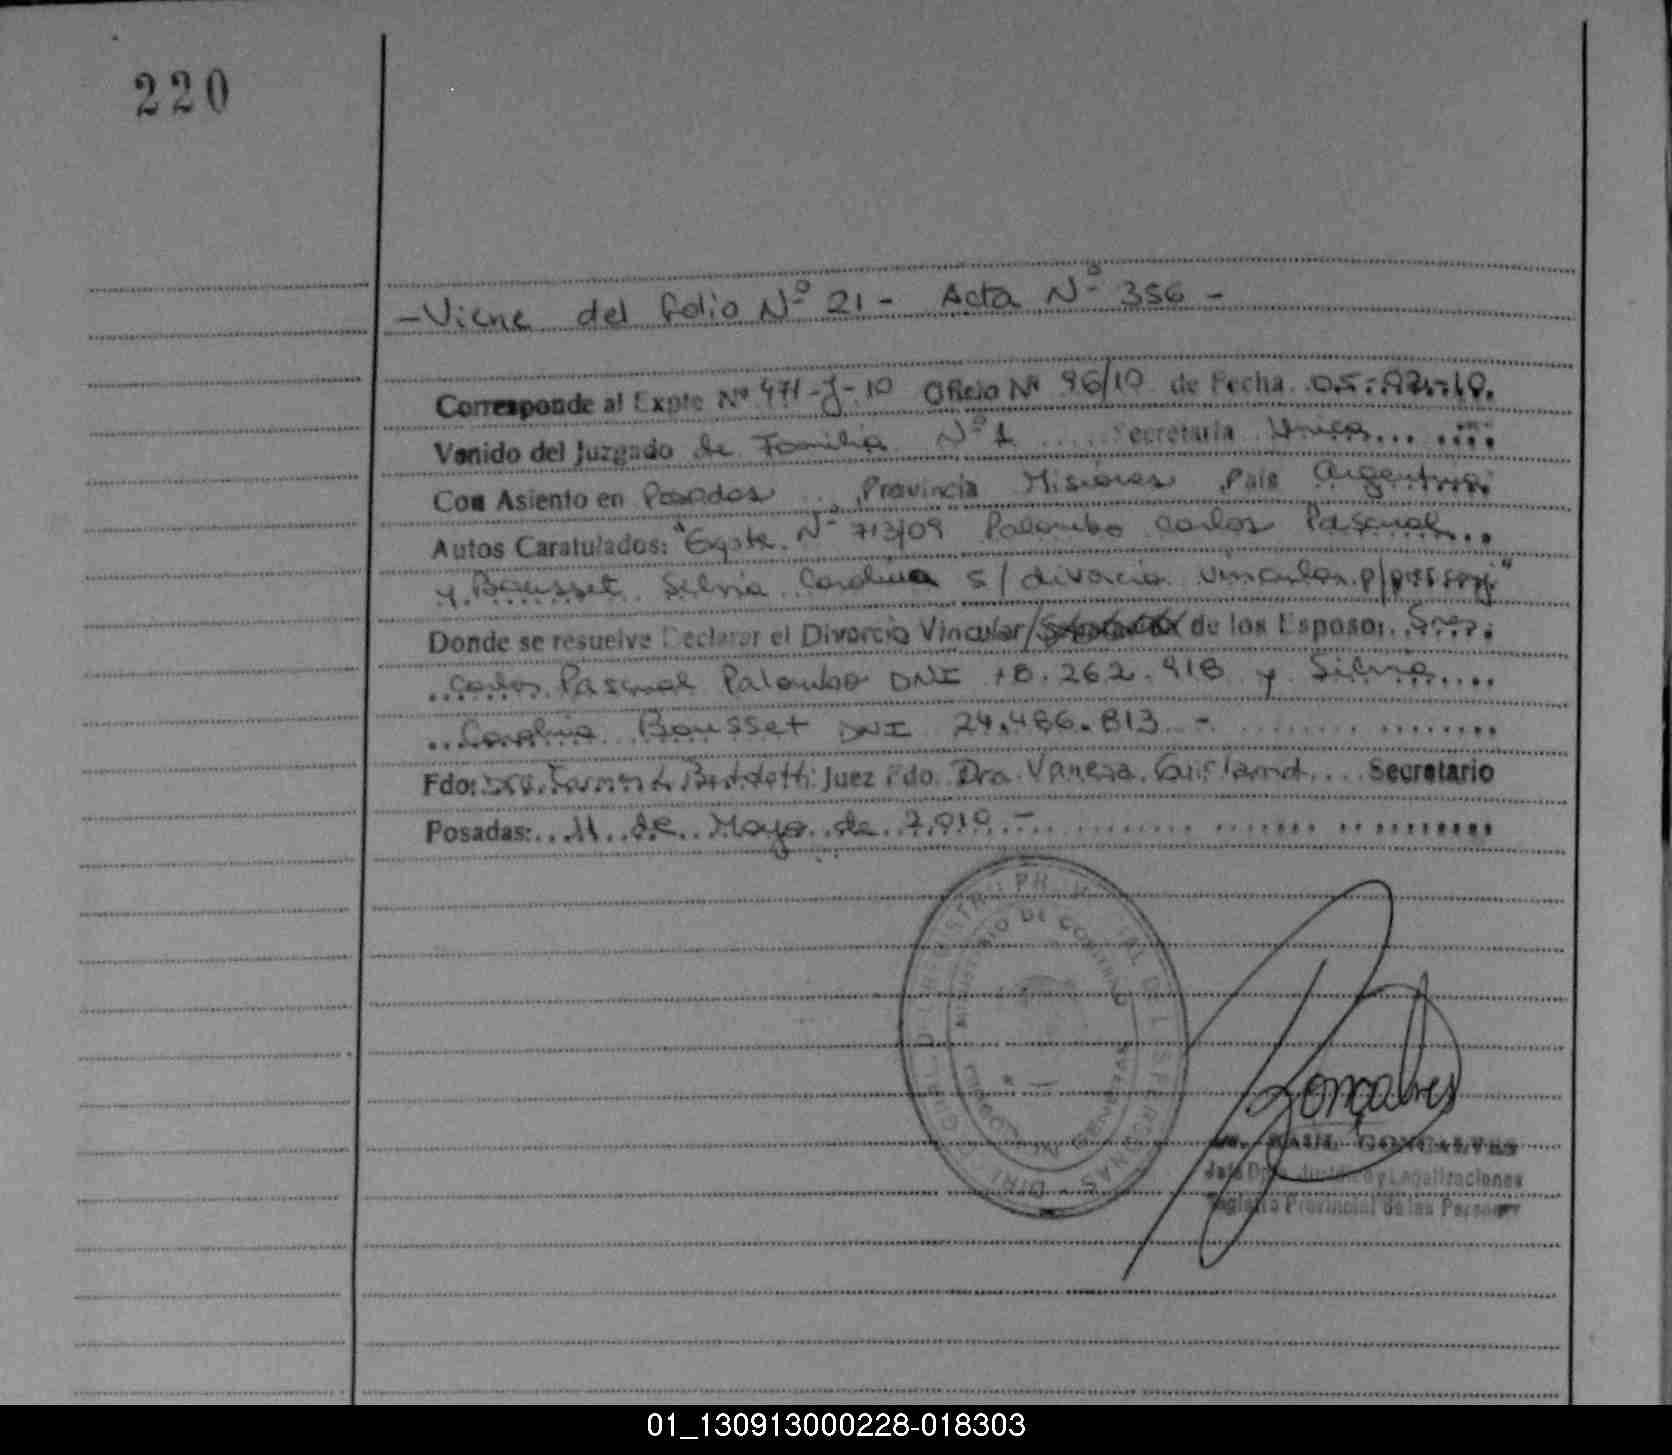 220
-Viene del folio Nº 21 - Acta Nº 356 -
Corresponde al Expte Nº 471-J-10 Oficio Nº 96/10 de Fecha 05.
Venido del Juzgado de Familia Nº 1 Secretaría Unica
Con Asiento en Posadas Provincia Misiones País Argentina
Autos Caratulados: "Expte. Nº 713/09 Palombo Carlos Pascual
y Bousset Silvia Carolina s/ divorcio vincular p/
Donde se resuelve Declarar el Divorcio Vincular/ de los Esposos Sres.
Carlos Pascual Palombo DNI 18.262.418 y Silvia
Carolina Bousset DNI 24.486.813 -
Fdo: Juez Fdo. Dra. Vanesa Secretario
Posadas: 11 de Mayo de 2.010 -
DIRECCION REGISTRO PROVINCIAL DE LAS PERSONAS
MINISTERIO DE GOBIERNO
POSADAS MISIONES
Gonçalves
RAUL GONCALVES
Jefe Dpto. Jurídico y Legalizaciones
Registro Provincial de las Personas
01_130913000228-018303